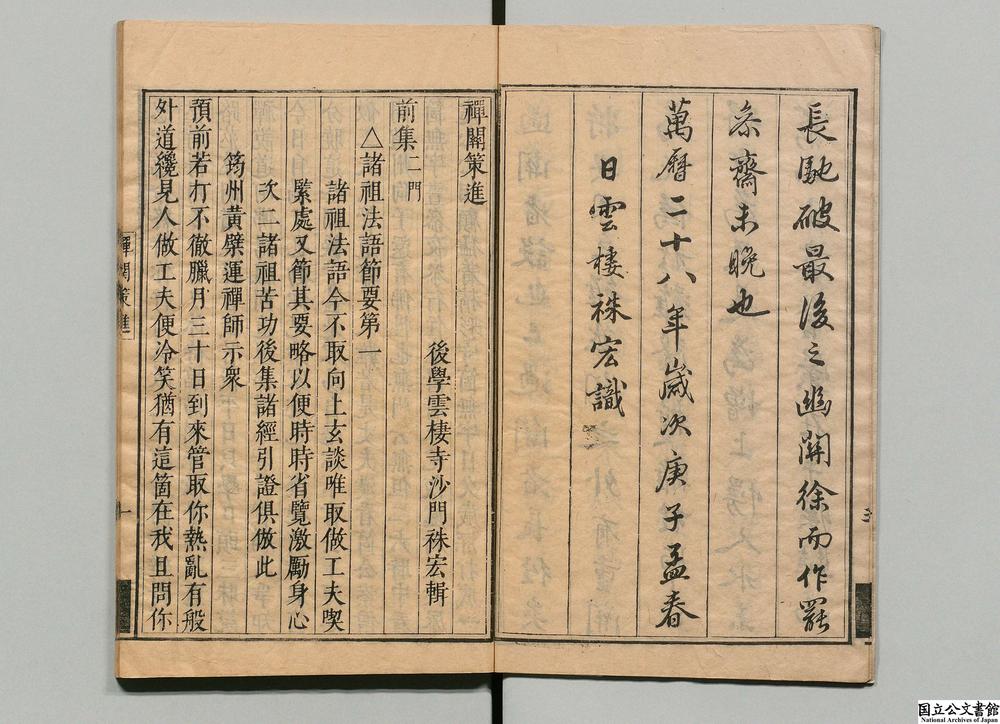 長馳破最後之幽關徐而作罷
叅齋未晩也
萬曆二十八年歲次庚子孟春
日雲棲袾宏識
禪關策進
後學雲棲寺沙門袾宏輯
前集二門
△諸祖法語節要第一
諸祖法語今不取向上玄談唯取做工夫喫
緊處又節其要略以便時時省覽激勵身心
次二諸祖苦功後集諸經引證俱倣此
筠州黃檗運禪師示衆
預前若打不徹臘月三十日到來管取你熱亂有般
外道纔見人做工夫便冷笑猶有這箇在我且問你
禪關策進
一
国立公文書館
National Archives of Japan